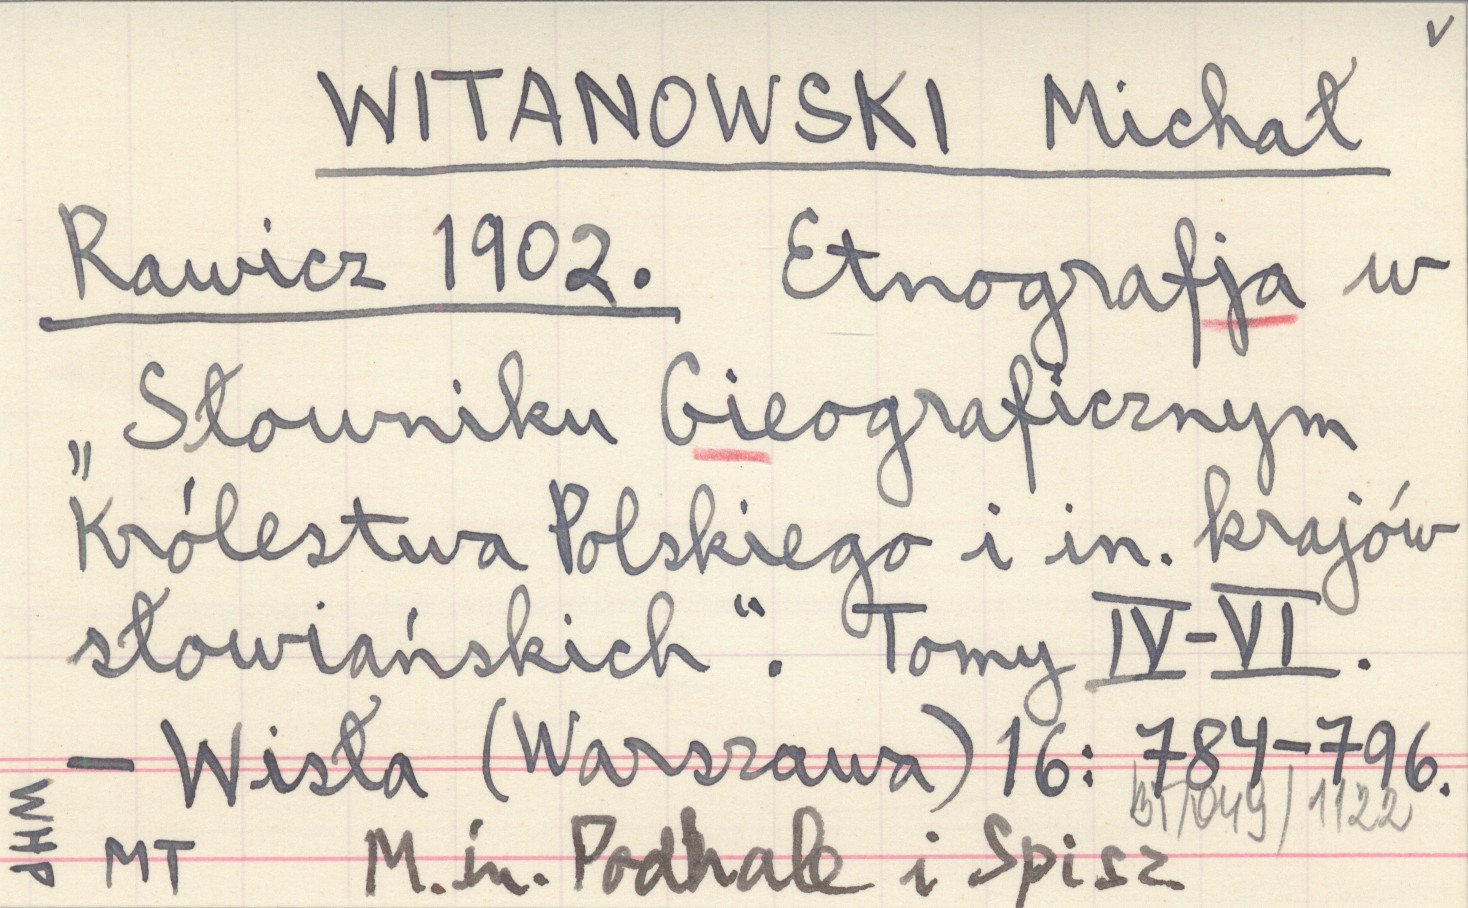 v
WITANOWSKI Michał
Rawicz 1902. Etnografja w
„Słowniku Gieograficznym
Królestwa Polskiego i in. krajów
słowiańskich“. Tomy IV-VI.
— Wisła (Warszawa) 16: 784-796.
BT/049/1122
WHP MT M.in. Podhale i Spisz